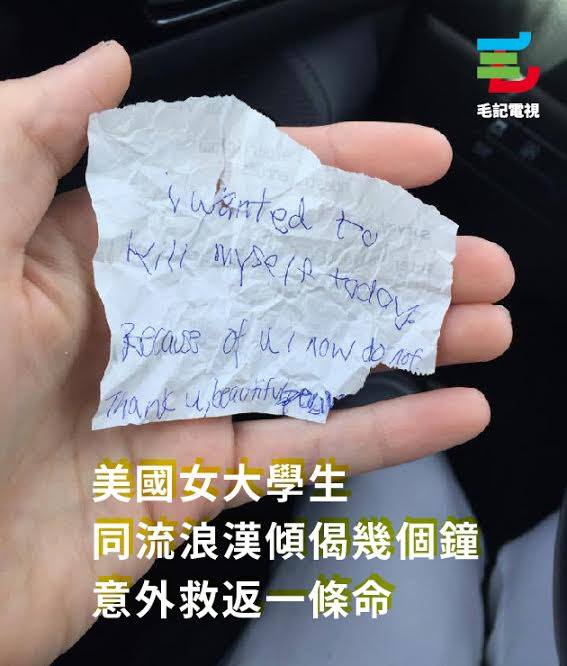 毛記電視
i wanted to
kill myself today.
Because of u i now do not.
Thank u, beautiful
美國女大學生
同流浪漢傾偈幾個鐘
意外救返一條命